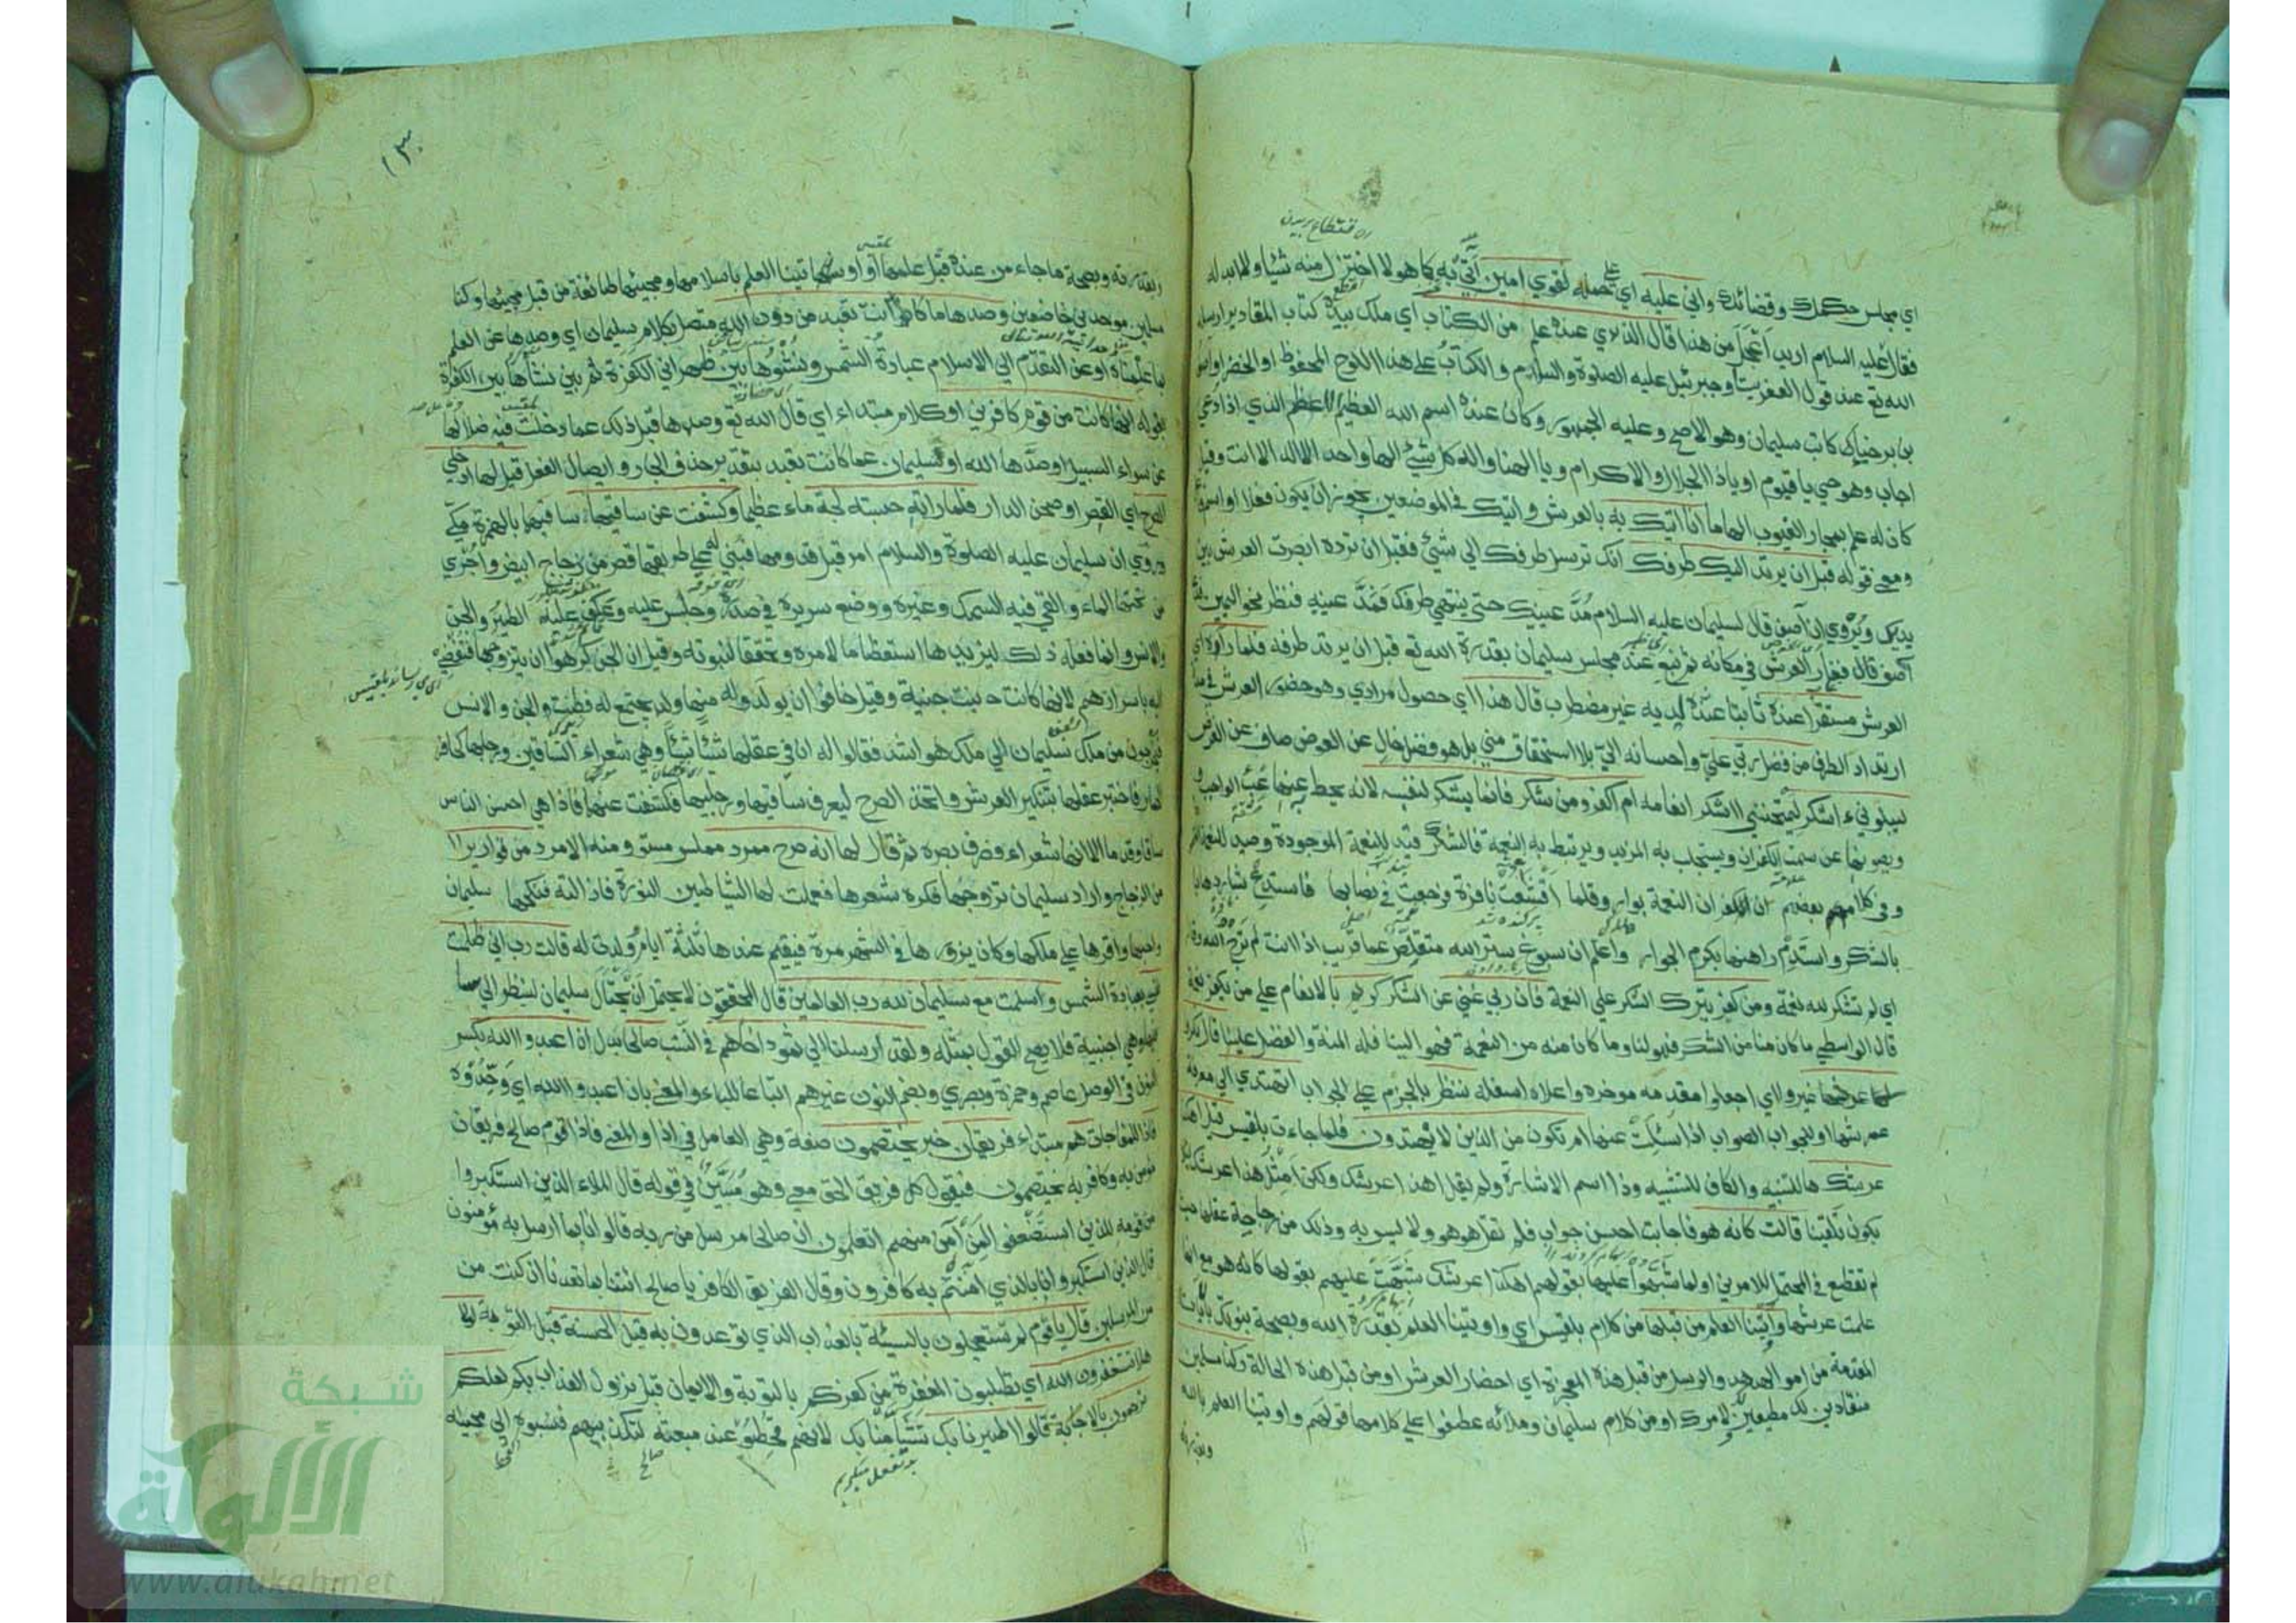 اي مجلس حكمك وقضائك واني عليه اي على حمله لقوي امين آتي به كما هو لا اختزل منه شيئا ولا ابدله
فقال عليه السلام اريد اعجل من هذا قال الذي عنده علم من الكتاب اي ملك بيده كتاب المقادير ارسله
الله تع عند قول العفريت او جبرئيل عليه الصلوة والسلام والكتاب على هذا اللوح المحفوظ او الخضر او آصف
بن برخيا كاتب سليمان وهو الاصح وعليه الجمهور وكان عنده اسم الله العظيم الاعظم الذي اذا دعي
اجاب وهو حي يا قيوم او يا ذا الجلال والاكرام او يا الهنا واله كل شيئ الها واحدا لا اله الا انت وقيل
كان له علم بمجار الغيوب الهاما انا اتيك به بالعرش واتيك في الموضعين يجوز ان يكون فعلا او اسم فاعل
ومعنى قوله قبل ان يرتد اليك طرفك انك ترسل طرفك الى شيئ فقبل ان ترده ابصرت العرش بين
يديك ويروى ان آصف قال لسليمان عليه السلام مد عينيك حتى ينتهي طرفك فمد عينيه فنظر نحو اليمين فدعا
آصف فغار العرش في مكانه ثم نبع عند مجلس سليمان بقدرة الله تع قبل ان يرتد طرفه فلما رآه اي
العرش مستقرا عنده ثابتا عنده لديه غير مضطرب قال هذا اي حصول مرادي وهو حضور العرش في مدة
ارتداد الطرف من فضل ربي علي واحسانه الي بلا استحقاق مني بل هو فضل خال عن العوض صاف عن الغرض
ليبلوني ءاشكر ليمتحنني ااشكر انعامه ام اكفر ومن شكر فانما يشكر لنفسه لانه يحط به عنها عبء الواجب و
ويصونها عن سمة الكفران ويستجلب به المزيد ويرتبط به النعمة فالشكر قيد للنعمة الموجودة وصيد للنعمة المفقودة
وفي كلام بعضهم ان كفران النعمة بوار وقلما اقشعت نافرة فرجعت في نصابها فاستدع شاردها
بالشكر واستدم راهنها بكرم الجوار واعلم ان سبوغ ستر الله متقلص عما قريب اذا انت لم ترج الله وقارا
اي لم تشكر لله نعمة ومن كفر بترك الشكر على النعمة فان ربي غني عن الشكر كريم بالانعام على من يكفر نعمه
قال الواسطي ما كان منا من الشكر فهو لنا وما كان منه من النعمة فهو الينا فله المنة والفضل علينا قال نكروا
لها عرشها غيروا اي اجعلوا مقدمه مؤخره واعلاه اسفله ننظر بالجزم على الجواب اتهتدي الى معرفة
عرشها او للجواب الصواب اذا سئلت عنها ام تكون من الذين لا يهتدون فلما جاءت بلقيس قيل اهكذا
عرشك ها للتنبيه والكاف للتشبيه وذا اسم الاشارة ولم يقل اهذا عرشك ولكن امثل هذا عرشك لئلا
يكون تلقينا قالت كانه هو فاجابت احسن جواب فلم تقل هو هو ولا ليس به وذلك من رجاحة عقلها حيث
لم تقطع في المحتمل للامرين او لما شبهوا عليها بقولهم اهكذا عرشك شبهت عليهم بقولها كانه هو مع انها
علمت عرشها واوتينا العلم من قبلها من كلام بلقيس اي واوتينا العلم بقدرة الله وبصحة نبوتك بالآيات
المتقدمة من امر الهدهد والرسل من قبل هذه المعجزة اي احضار العرش او من قبل هذه الحالة وكنا مسلمين
منقادين لك مطيعين لامرك او من كلام سليمان وملائه عطفوا على كلامها قولهم واوتينا العلم بالله
وبقدرته
وبقدرته وبصحة ما جاء من عنده قبل علمها او اوتينا العلم باسلامها ومجيئها طائعة من قبل مجيئها وكنا
مسلمين موحدين خاضعين وصدها ما كانت تعبد من دون الله متصل بكلام سليمان اي وصدها عن العلم
بما علمناه او عن التقدم الى الاسلام عبادة الشمس ونشؤها بين ظهراني الكفرة ثم بين نشأها بين الكفرة
بقوله انها كانت من قوم كافرين او كلام مبتداء اي قال الله تع وصدها قبل ذلك عما دخلت فيه ضلالها
عن سواء السبيل او صدها الله او سليمان عما كانت تعبد بتقدير حذف الجار وايصال الفعل قيل لها ادخلي
الصرح اي القصر او صحن الدار فلما راته حسبته لجة ماء عظيما وكشفت عن ساقيها ساقيها بالهمزة مكي
وروي ان سليمان عليه الصلوة والسلام امر قبل قدومها فبني له على طريقها قصر من زجاج ابيض واجري
من تحتها الماء والقي فيه السمك وغيره ووضع سريره في صدره وجلس عليه وعكف عليه الطير والجن
والانس وانما فعل ذلك ليزيدها استعظاما لامره وتحققا لنبوته وقيل ان الجن كرهوا ان يتزوجها فتفضي
اليه باسرارهم لانها كانت بنت جنية وقيل خافوا ان يولد له منها ولد يجتمع له فطنة الجن والانس
فيخرجون من ملك سليمان الى ملك هو اشد فقالوا له ان في عقلها شيئا وهي شعراء الساقين ورجلها كحافر
الحمار فاختبر عقلها بتنكير العرش واتخذ الصرح ليعرف ساقيها ورجليها فكشفت عنهما فاذا هي احسن الناس
ساقا وقدما الا انها شعراء فصرف بصره ثم قال لها انه صرح ممرد مملس مستو ومنه الامرد من قوارير
من الزجاج واراد سليمان تزوجها فكره شعرها فعملت لها الشياطين النورة فازالته فنكحها سليمان
واحبها واقرها على ملكها وكان يزورها في الشهر مرة فيقيم عندها ثلثة ايام وولدت له قالت رب اني ظلمت
نفسي بعبادة الشمس واسلمت مع سليمان لله رب العالمين قال المحققون لا يحتمل ان يحتال سليمان لينظر الى
ساقها وهي اجنبية فلا يصح القول بمثله ولقد ارسلنا الى ثمود اخاهم في النسب صالحا بدل ان اعبدوا الله بكسر
النون في الوصل عاصم وحمزة وبصري وبضم النون غيرهم اتباعا للباء والمعنى بان اعبدوا الله اي وحدوه
فاذا للمفاجاة هم مبتداء فريقان خبر يختصمون صفة وهي العامل في اذا والمعنى فاذا قوم صالح فريقان
مؤمن به وكافر به يختصمون فيقول كل فريق الحق معي وهو مبين في قوله قال الملاء الذين استكبروا
من قومه للذين استضعفوا لمن آمن منهم اتعلمون ان صالحا مرسل من ربه قالوا انا بما ارسل به مؤمنون
قال الذين استكبروا انا بالذي آمنتم به كافرون وقال الفريق الكافر يا صالح ائتنا بما تعدنا ان كنت من
من المرسلين قال يا قوم لم تستعجلون بالسيئة بالعذاب الذي توعدون به قبل الحسنة قبل التوبة لولا
هلا تستغفرون الله اي تطلبون المغفرة من كفركم بالتوبة والايمان قبل نزول العذاب بكم لعلكم
ترحمون بالاجابة قالوا اطيرنا بك تشأمنا بك لانهم قحطوا عند مبعثه لتكذيبهم فنسبوه الى مجيئه
شبكة
الألوكة
www.alukah.net